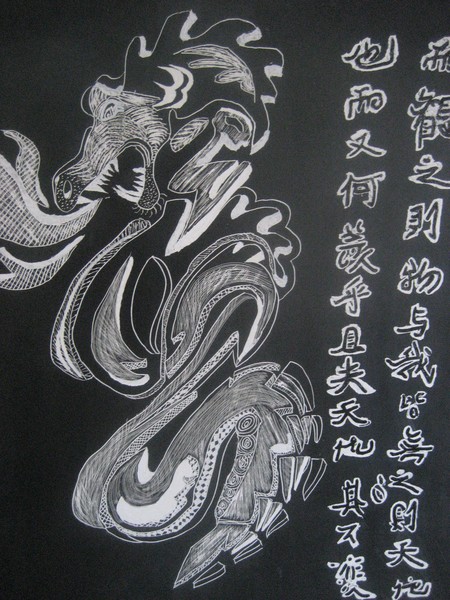 而觀之則物与我皆無之則天地
也而又何羨乎且夫天地 其不變